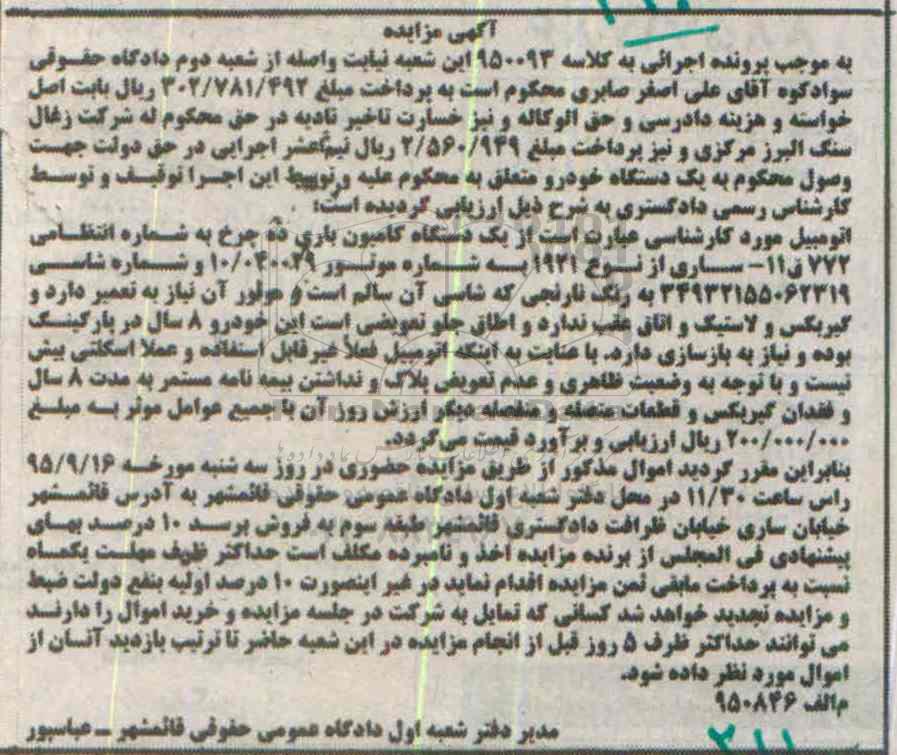 آگهی مزایده
به موجب پرونده اجرائی به کلاسه ۹۵۰۰۹۳ این شعبه نیابت واصله از شعبه دوم دادگاه حقوقی
سوادکوه آقای علی اصغر صابری محکوم است به پرداخت مبلغ ۳۰۲/۷۸۱/۴۹۲ ریال بابت اصل
خواسته و هزینه دادرسی و حق الوکاله و نیز خسارت تاخیر تادیه در حق محکوم له شرکت زغال
سنگ البرز مرکزی و نیز پرداخت مبلغ ۲/۵۶۰/۹۴۹ ریال نیم‌عشر اجرایی در حق دولت جهت
وصول محکوم به یک دستگاه خودرو متعلق به محکوم علیه و توسط این اجرا توقیف و توسط
کارشناس رسمی دادگستری به شرح ذیل ارزیابی گردیده است:
اتومبیل مورد کارشناسی عبارت است از یک دستگاه کامیون باری ده چرخ به شماره انتظامی
۷۷۲ ق۱۱- ساری از نوع ۱۹۲۱ به شماره موتور ۱۰/۰۴۰۰۲۹ و شماره شاسی
۳۴۹۳۲۱۵۵۰۶۲۳۱۹ به رنگ نارنجی که شاسی آن سالم است و موتور آن نیاز به تعمیر دارد و
گیربکس و لاستیک و اتاق عقب ندارد و اطاق جلو تعویضی است این خودرو ۸ سال در پارکینگ
بوده و نیاز به بازسازی دارد. با عنایت به اینکه اتومبیل فعلاً غیرقابل استفاده و عملا اسکلتی بیش
نیست و با توجه به وضعیت ظاهری و عدم تعویض پلاک و نداشتن بیمه نامه مستمر به مدت ۸ سال
و فقدان گیربکس و قطعات متصله و منفصله دیگر ارزش روز آن با جمیع عوامل موثر به مبلغ
۲۰۰/۰۰۰/۰۰۰ ریال ارزیابی و برآورد قیمت می‌گردد.
بنابراین مقرر گردید اموال مذکور از طریق مزایده حضوری در روز سه شنبه مورخه ۹۵/۹/۱۶
راس ساعت ۱۱/۳۰ در محل دفتر شعبه اول دادگاه عمومی حقوقی قائمشهر به آدرس قائمشهر
خیابان ساری خیابان ظرافت دادگستری قائمشهر طبقه سوم به فروش برسد ۱۰ درصد بهای
پیشنهادی فی المجلس از برنده مزایده اخذ و نامبرده مکلف است حداکثر ظرف مهلت یکماه
نسبت به پرداخت مابقی ثمن مزایده اقدام نماید در غیر اینصورت ۱۰ درصد اولیه بنفع دولت ضبط
و مزایده تجدید خواهد شد کسانی که تمایل به شرکت در جلسه مزایده و خرید اموال را دارند
می توانند حداکثر ظرف ۵ روز قبل از انجام مزایده در این شعبه حاضر تا ترتیب بازدید آنسان از
اموال مورد نظر داده شود.
م‌الف ۹۵۰۸۴۶
مدیر دفتر شعبه اول دادگاه عمومی حقوقی قائمشهر – عباسپور